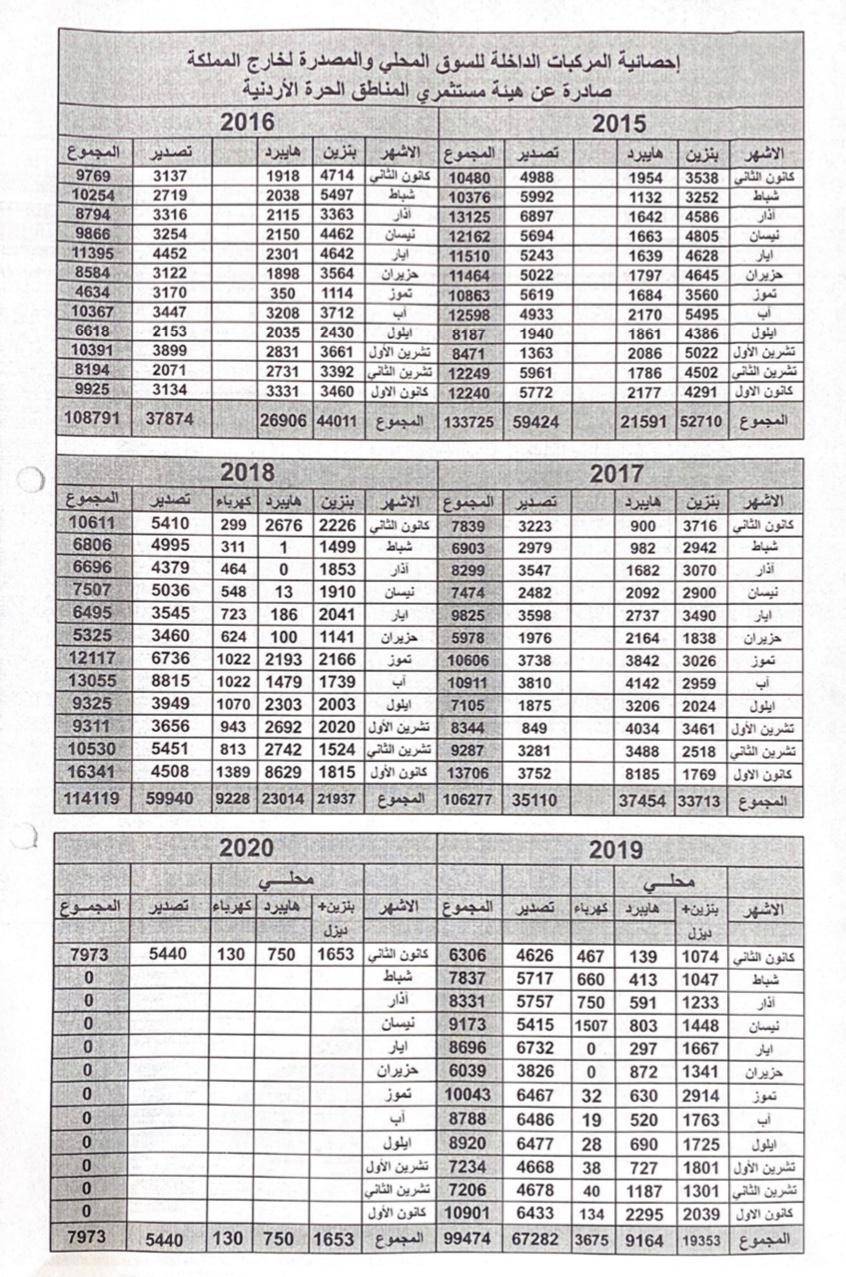 إحصائية المركبات الداخلة للسوق المحلي والمصدرة لخارج المملكة
صادرة عن هيئة مستثمري المناطق الحرة الأردنية
2015
الاشهر بنزين هايبرد تصدير المجموع
كانون الثاني 3538 1954 4988 10480
شباط 3252 1132 5992 10376
أذار 4586 1642 6897 13125
نيسان 4805 1663 5694 12162
ايار 4628 1639 5243 11510
حزيران 4645 1797 5022 11464
تموز 3560 1684 5619 10863
آب 5495 2170 4933 12598
ايلول 4386 1861 1940 8187
تشرين الأول 5022 2086 1363 8471
تشرين الثاني 4502 1786 5961 12249
كانون الاول 4291 2177 5772 12240
المجموع 52710 21591 59424 133725
2016
الاشهر بنزين هايبرد تصدير المجموع
كانون الثاني 4714 1918 3137 9769
شباط 5497 2038 2719 10254
أذار 3363 2115 3316 8794
نيسان 4462 2150 3254 9866
ايار 4642 2301 4452 11395
حزيران 3564 1898 3122 8584
تموز 1114 350 3170 4634
آب 3712 3208 3447 10367
ايلول 2430 2035 2153 6618
تشرين الأول 3661 2831 3899 10391
تشرين الثاني 3392 2731 2071 8194
كانون الاول 3460 3331 3134 9925
المجموع 44011 26906 37874 108791
2017
الاشهر بنزين هايبرد تصدير المجموع
كانون الثاني 3716 900 3223 7839
شباط 2942 982 2979 6903
أذار 3070 1682 3547 8299
نيسان 2900 2092 2482 7474
ايار 3490 2737 3598 9825
حزيران 1838 2164 1976 5978
تموز 3026 3842 3738 10606
آب 2959 4142 3810 10911
ايلول 2024 3206 1875 7105
تشرين الأول 3461 4034 849 8344
تشرين الثاني 2518 3488 3281 9287
كانون الاول 1769 8185 3752 13706
المجموع 33713 37454 35110 106277
2018
الاشهر بنزين هايبرد كهرباء تصدير المجموع
كانون الثاني 2226 2676 299 5410 10611
شباط 1499 1 311 4995 6806
أذار 1853 0 464 4379 6696
نيسان 1910 13 548 5036 7507
ايار 2041 186 723 3545 6495
حزيران 1141 100 624 3460 5325
تموز 2166 2193 1022 6736 12117
آب 1739 1479 1022 8815 13055
ايلول 2003 2303 1070 3949 9325
تشرين الأول 2020 2692 943 3656 9311
تشرين الثاني 1524 2742 813 5451 10530
كانون الأول 1815 8629 1389 4508 16341
المجموع 21937 23014 9228 59940 114119
2019
محلـــي
الاشهر بنزين+ ديزل هايبرد كهرباء تصدير المجموع
كانون الثاني 1074 139 467 4626 6306
شباط 1047 413 660 5717 7837
أذار 1233 591 750 5757 8331
نيسان 1448 803 1507 5415 9173
ايار 1667 297 0 6732 8696
حزيران 1341 872 0 3826 6039
تموز 2914 630 32 6467 10043
آب 1763 520 19 6486 8788
ايلول 1725 690 28 6477 8920
تشرين الأول 1801 727 38 4668 7234
تشرين الثاني 1301 1187 40 4678 7206
كانون الاول 2039 2295 134 6433 10901
المجموع 19353 9164 3675 67282 99474
2020
محلـــي
الاشهر بنزين+ ديزل هايبرد كهرباء تصدير المجمــوع
كانون الثاني 1653 750 130 5440 7973
شباط 0
أذار 0
نيسان 0
ايار 0
حزيران 0
تموز 0
آب 0
ايلول 0
تشرين الأول 0
تشرين الثاني 0
كانون الأول 0
المجموع 1653 750 130 5440 7973